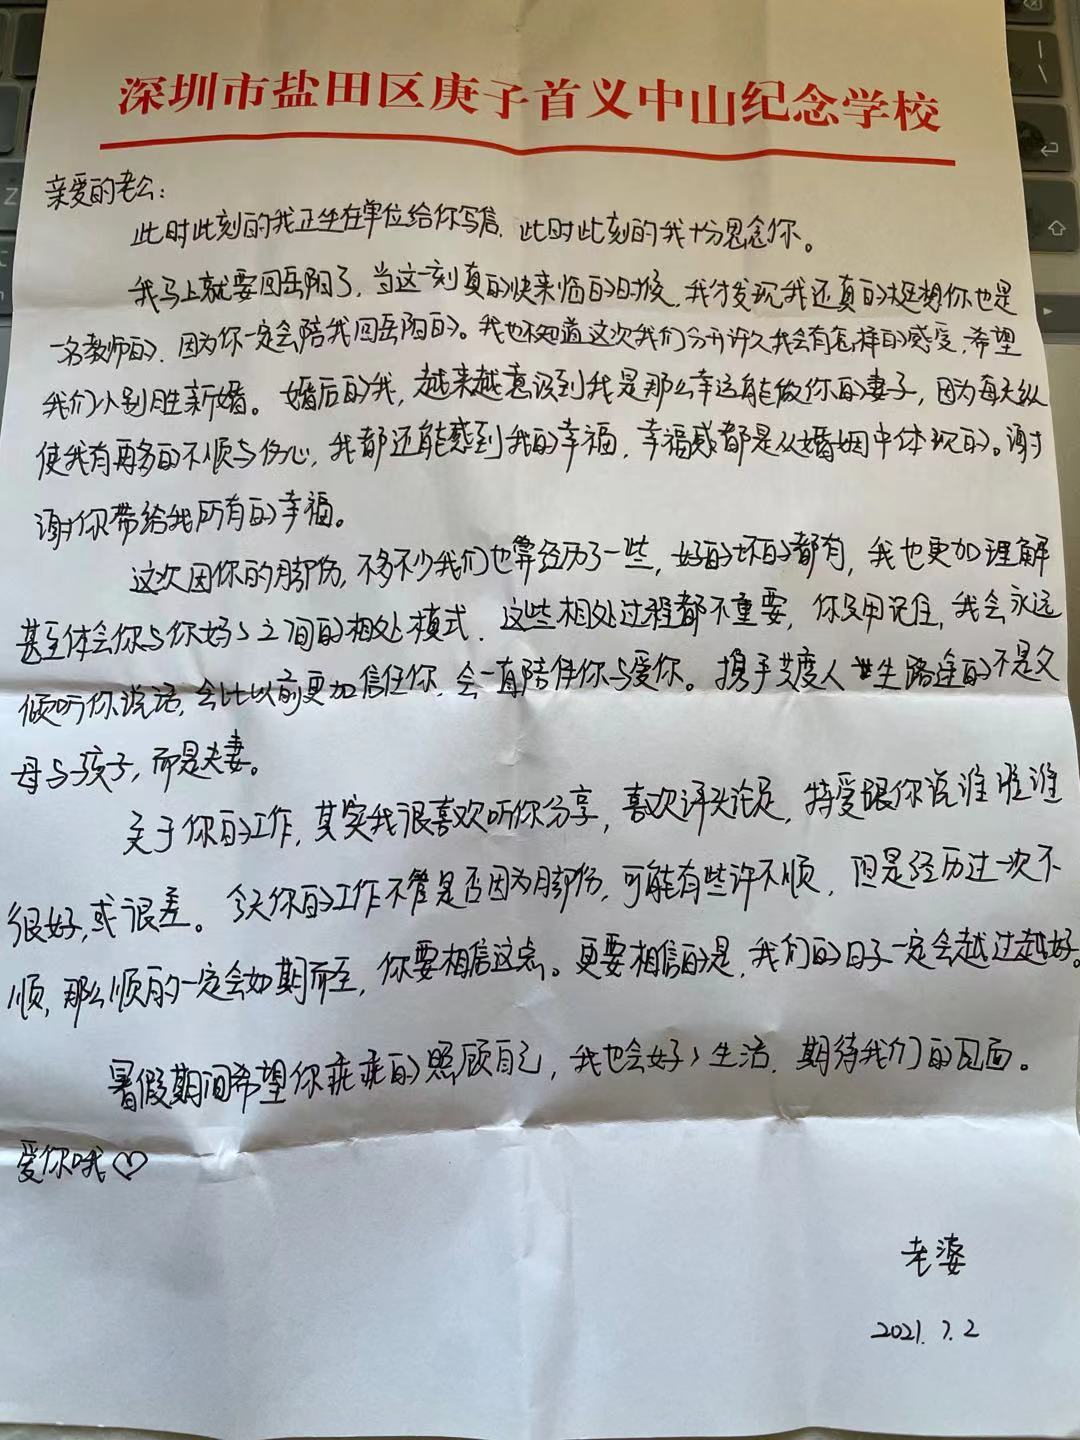 深圳市盐田区庚子首义中山纪念学校
亲爱的老公：
此时此刻的我正坐在单位给你写信，此时此刻的我十分思念你。
我马上就要回岳阳了，当这一刻真的快来临的时候，我才发现我还真的挺想你也是
一名教师的，因为你一定会陪我回岳阳的。我也不知道这次我们分开许久我会有怎样的感受，希望
我们小别胜新婚。婚后的我，越来越意识到我是那么幸运能做你的妻子，因为每天纵
使我有再多的不顺与伤心，我都还能感到我的幸福，幸福感都是从婚姻中体现的。谢
谢你带给我所有的幸福。
这次因你的脚伤，不多不少我们也算经历了一些，好的坏的都有，我也更加理解
甚至体会你与你妈妈之间的相处模式，这些相处过程都不重要，你只用记住，我会永远
倾听你说话，会比以前更加信任你，会一直陪伴你与爱你。携手共度人生路途的不是父
母与孩子，而是夫妻。
关于你的工作，其实我很喜欢听你分享，喜欢评头论足，特爱跟你说谁谁谁
很好，或很差。今天你的工作不管是否因为脚伤，可能有些许不顺，但是经历过一次不
顺，那么顺的一定会如期而至，你要相信这点。更要相信的是，我们的日子一定会越过越好。
暑假期间希望你乖乖的照顾自己，我也会好好生活，期待我们的见面。
爱你哦♡
老婆
2021.7.2